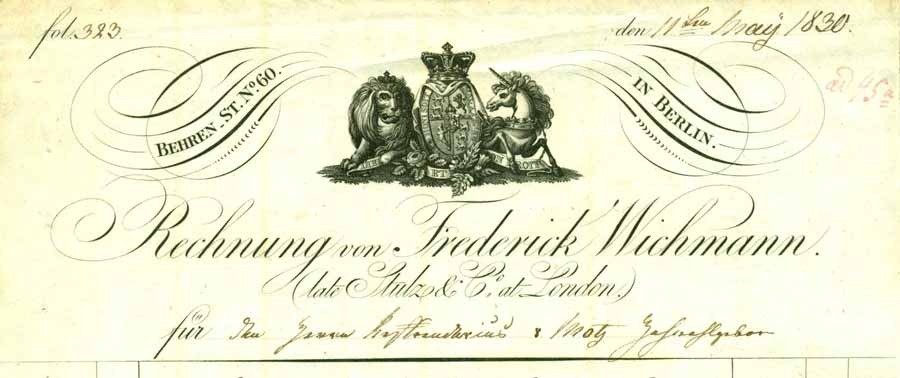 fol. 323.
den 11ten May 1830.
BEHREN-ST. No. 60.
IN BERLIN.
ad 45a
DIEU ET MON DROIT
Rechnung von Frederick Wichmann.
(late Stulz & Co. at London.)
für den Herrn Referendarius v Motz Hochwohlgebor